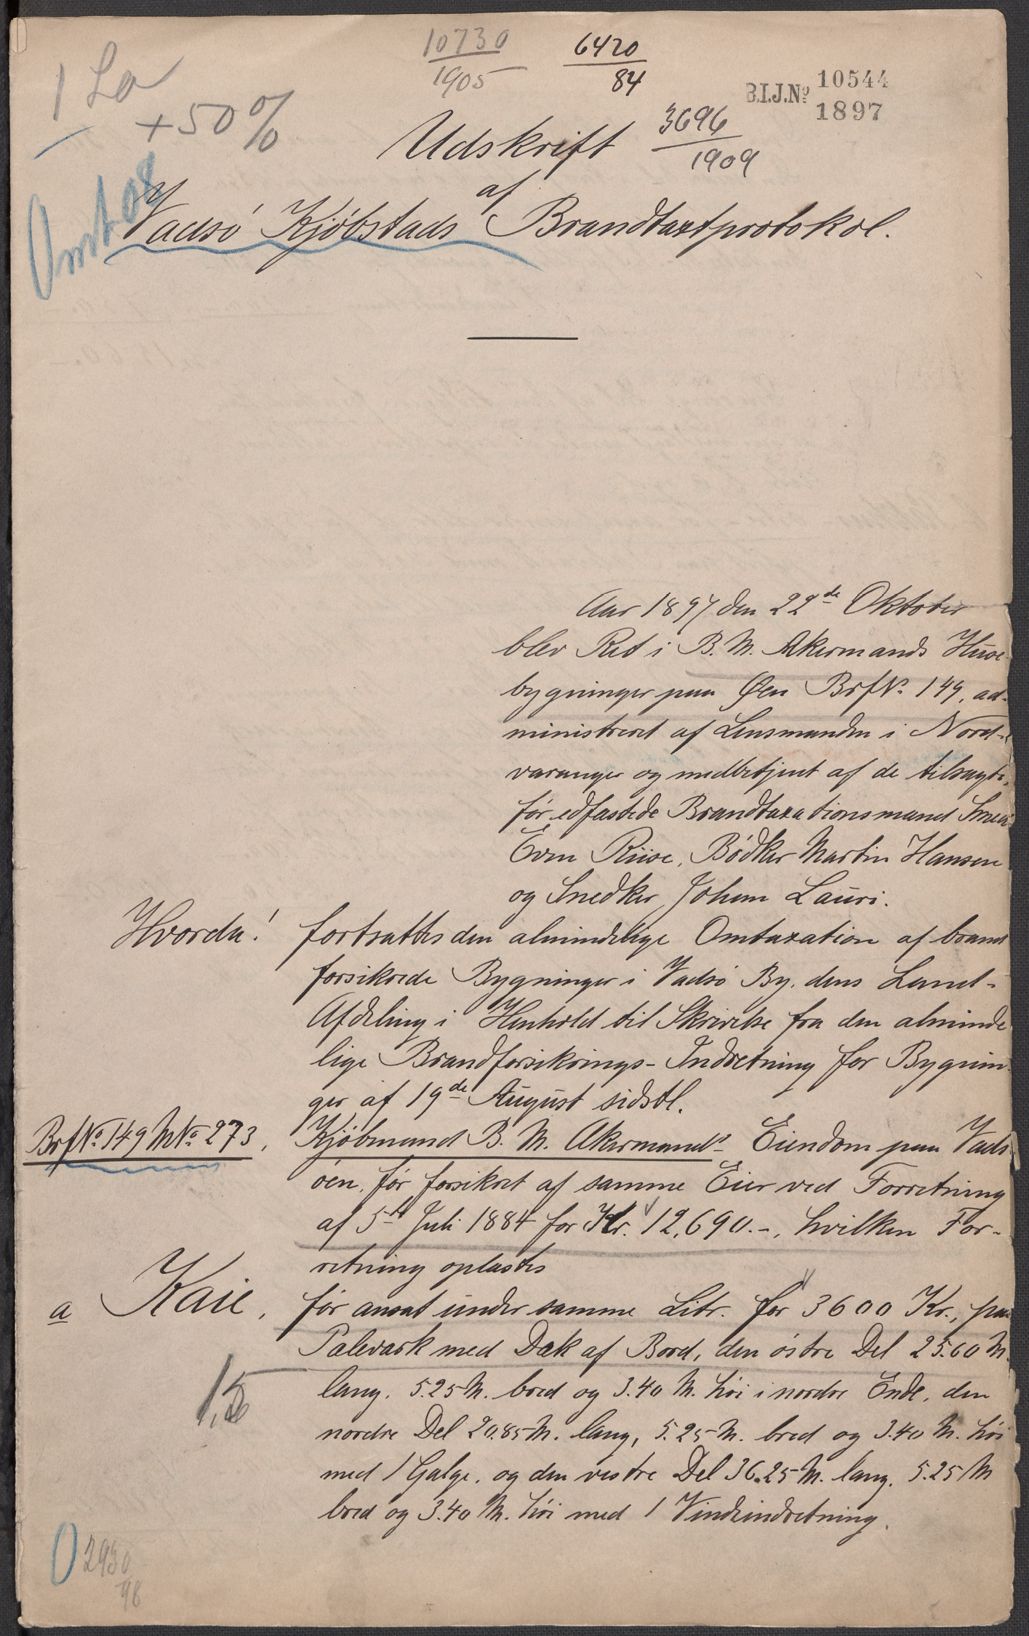 1 La
+50%
10730
1905
6420
84
B.I.J.No 10544
1897
3696
1909
Amt 08
Udskrift
af
Vadsö Kjöbstads Brandtaxtprotokol.
Aar 1897 den 22de Oktober
blev Ret i B. M. Akermands Huse
bygninger paa Øen BrfN. 149, ad-
ministreret af Lensmanden i Nord-
varanger og medbetjent af de tilsagte,
før edfæstede Brandtaxationsmænd Smed
Even Riise, Bödker Martin Hansen
og Snedker Johan Lauri.
Hvorda! fortsattes den almindelige Omtaxation af brand
forsikrede Bygninger i Vadsö By, dens Land-
Afdeling i Henhold til Skrivelse fra den alminde
lige Brandforsikrings-Indretning for Bygnin
ger af 19de August sidstl.
BrfNo 149 MNo 273. Kjöbmand B. M. Akermands Eiendom paa Vads
öen, før forsikret af samme Eier ved Forretning
af 5te Juli 1884 for Kr. 12,690.-, hvilken For-
retning oplæstes
a Kaie, før ansat under samme Litr. for 3600 Kr., paa
Palevark med Dæk af Bord, den östre Del 25.60 M.
lang, 5.25 M. bred og 3.40 M. höi i nordre Ende, den
nordre Del 20.85 M. lang, 5.25 M. bred og 3.40 M. höi
med 1 Galge, og den vestre Del 36.25 M. lang, 5.25 M
bred og 3.40 M. höi med 1 Vindeindretning.
15
0 2930
98